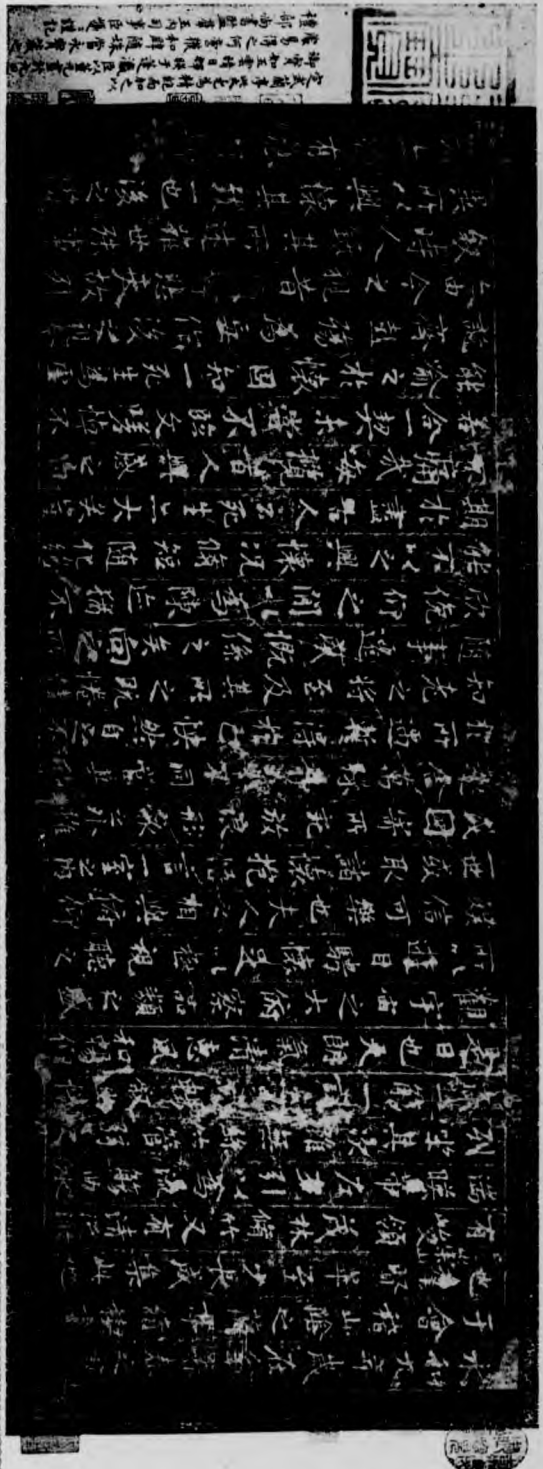 永和九年歲在癸丑暮春之初會
于會稽山陰之蘭亭脩稧事
也群賢畢至少長咸集此地
有崇山峻領茂林脩竹又有清流激
湍暎帶左右引以為流觴曲水
列坐其次雖無絲竹管弦之
盛一觴一詠亦足以暢敘幽情
是日也天朗氣清惠風和暢仰
觀宇宙之大俯察品類之盛
所以遊目騁懷足以極視聽之
娛信可樂也夫人之相與俯仰
一世或取諸懷抱悟言一室之內
或因寄所託放浪形骸之外雖
趣舍萬殊靜躁不同當其欣
於所遇蹔得於己怏然自足不
知老之將至及其所之既惓情
隨事遷感慨係之矣向之所
欣俛仰之閒以為陳迹猶不
能不以之興懷況脩短隨化終
期於盡古人云死生亦大矣豈
不痛哉每攬昔人興感之由
若合一契未嘗不臨文嗟悼不
能喻之於懷固知一死生為虛
誕齊彭殤為妄作後之視今
亦由今之視昔悲夫故列
敘時人錄其所述雖世殊事
異所以興懷其致一也後之攬
者亦將有感
定武蘭亭此尤為精絕而加之以
御寶如五雲晴日輝映于蓬瀛臣以董元畫於九思
處易得之何啻獲和璧隨珠當永寶藏之
禮部尚書監羣玉內司事臣巎巎謹記